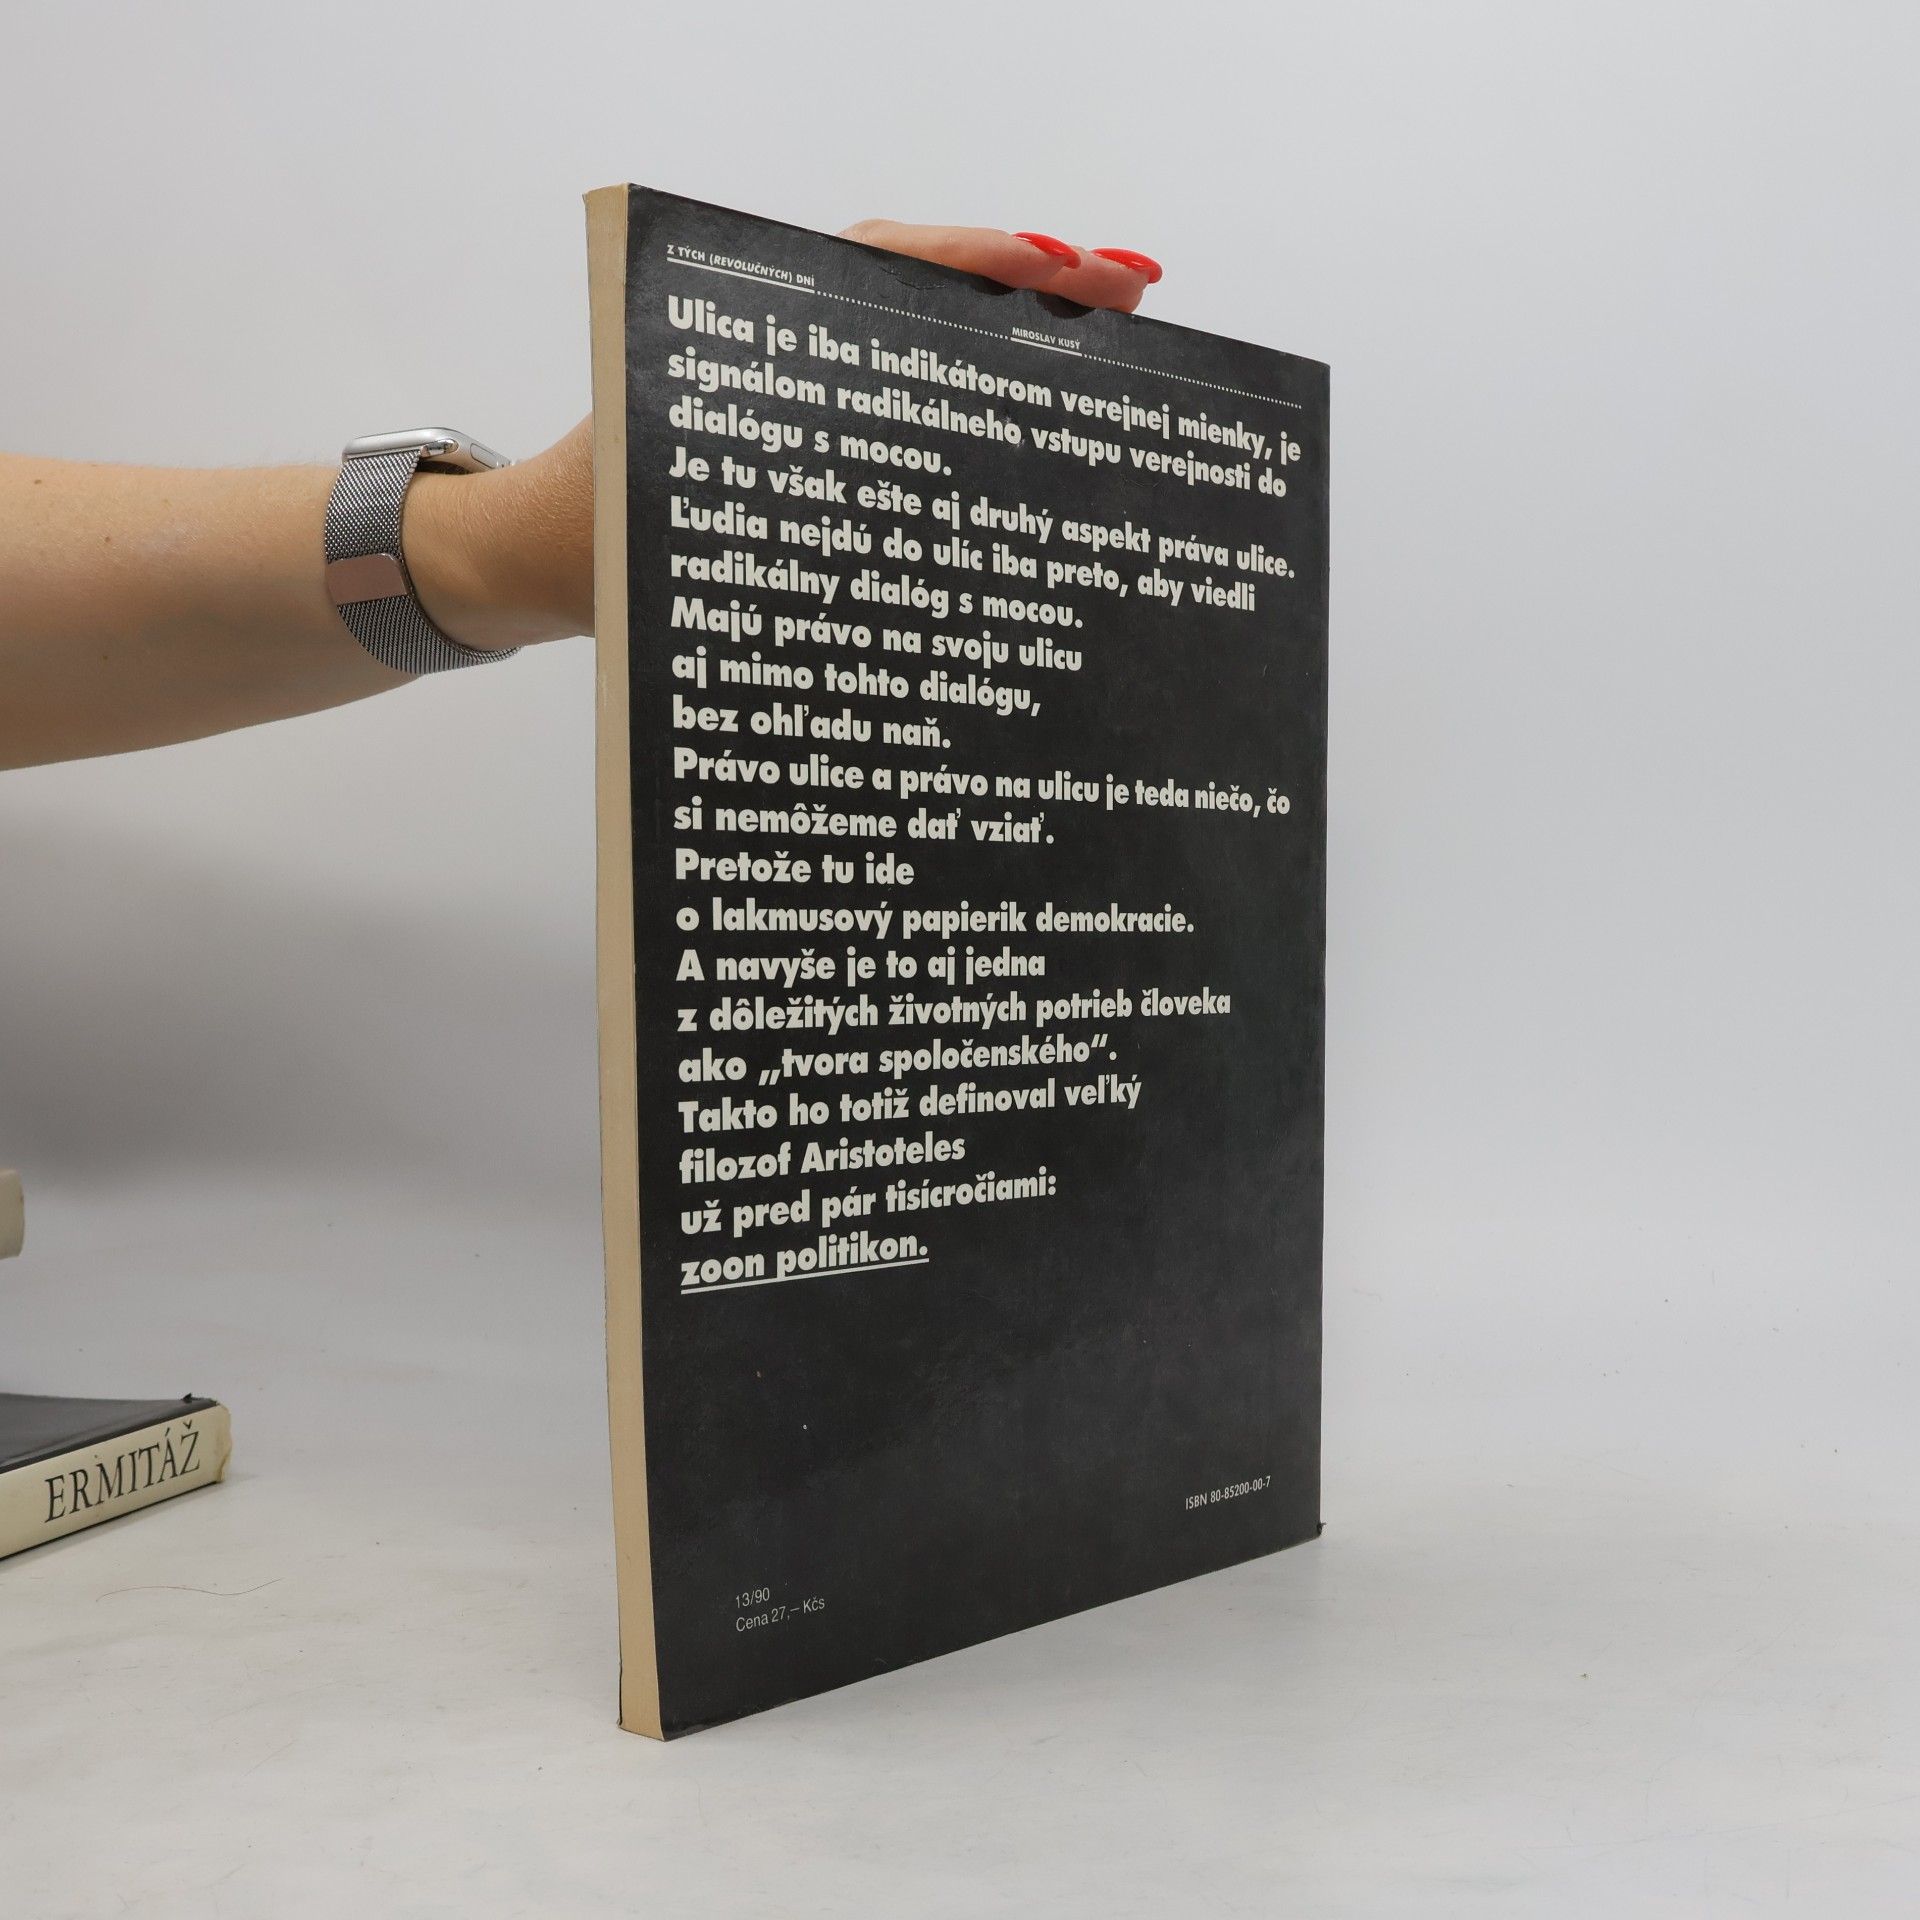 Z TÝCH (REVOLUČNÝCH) DNÍ
MIROSLAV KUSÝ
Ulica je iba indikátorom verejnej mienky, je
signálom radikálneho vstupu verejnosti do
dialógu s mocou.
Je tu však ešte aj druhý aspekt práva ulice.
Ľudia nejdú do ulíc iba preto, aby viedli
radikálny dialóg s mocou.
Majú právo na svoju ulicu
aj mimo tohto dialógu,
bez ohľadu naň.
Právo ulice a právo na ulicu je teda niečo, čo
si nemôžeme dať vziať.
Pretože tu ide
o lakmusový papierik demokracie.
A navyše je to aj jedna
z dôležitých životných potrieb človeka
ako „tvora spoločenského“.
Takto ho totiž definoval veľký
filozof Aristoteles
už pred pár tisícročiami:
zoon politikon.
ISBN 80-85200-00-7
13/90
Cena 27,– Kčs
ERMITÁŽ